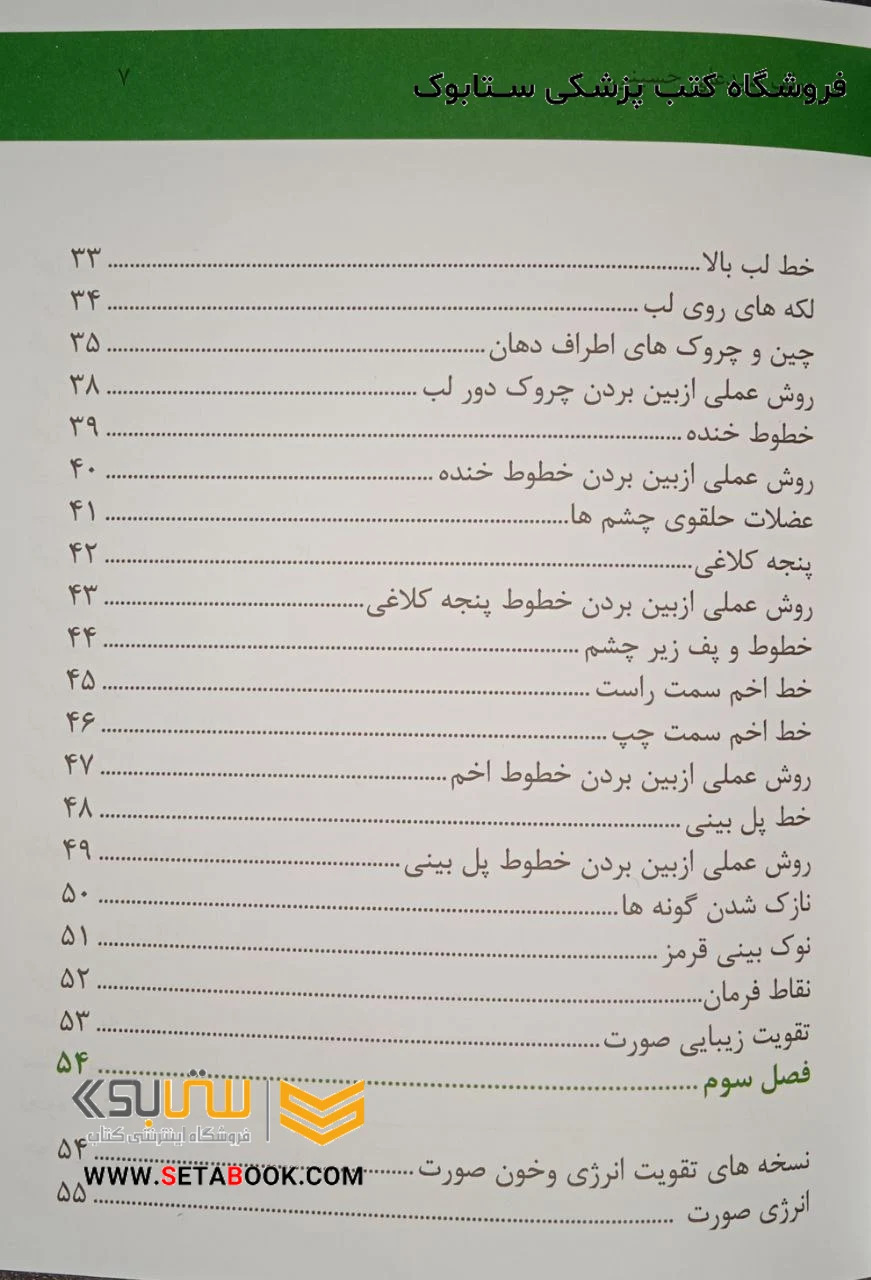 فروشگاه کتب پزشکی ستابوک
۷
خط لب بالا ۳۳
لکه های روی لب ۳۴
چین و چروک های اطراف دهان ۳۵
روش عملی ازبین بردن چروک دور لب ۳۸
خطوط خنده ۳۹
روش عملی ازبین بردن خطوط خنده ۴۰
عضلات حلقوی چشم ها ۴۱
پنجه کلاغی ۴۲
روش عملی ازبین بردن خطوط پنجه کلاغی ۴۳
خطوط و پف زیر چشم ۴۴
خط اخم سمت راست ۴۵
خط اخم سمت چپ ۴۶
روش عملی ازبین بردن خطوط اخم ۴۷
خط پل بینی ۴۸
روش عملی ازبین بردن خطوط پل بینی ۴۹
نازک شدن گونه ها ۵۰
نوک بینی قرمز ۵۱
نقاط فرمان ۵۲
تقویت زیبایی صورت ۵۳
فصل سوم ۵۴
ستابوک
فروشگاه اینترنتی کتاب
نسخه های تقویت انرژی وخون صورت ۵۴
WWW.SETABOOK.COM
انرژی صورت ۵۵